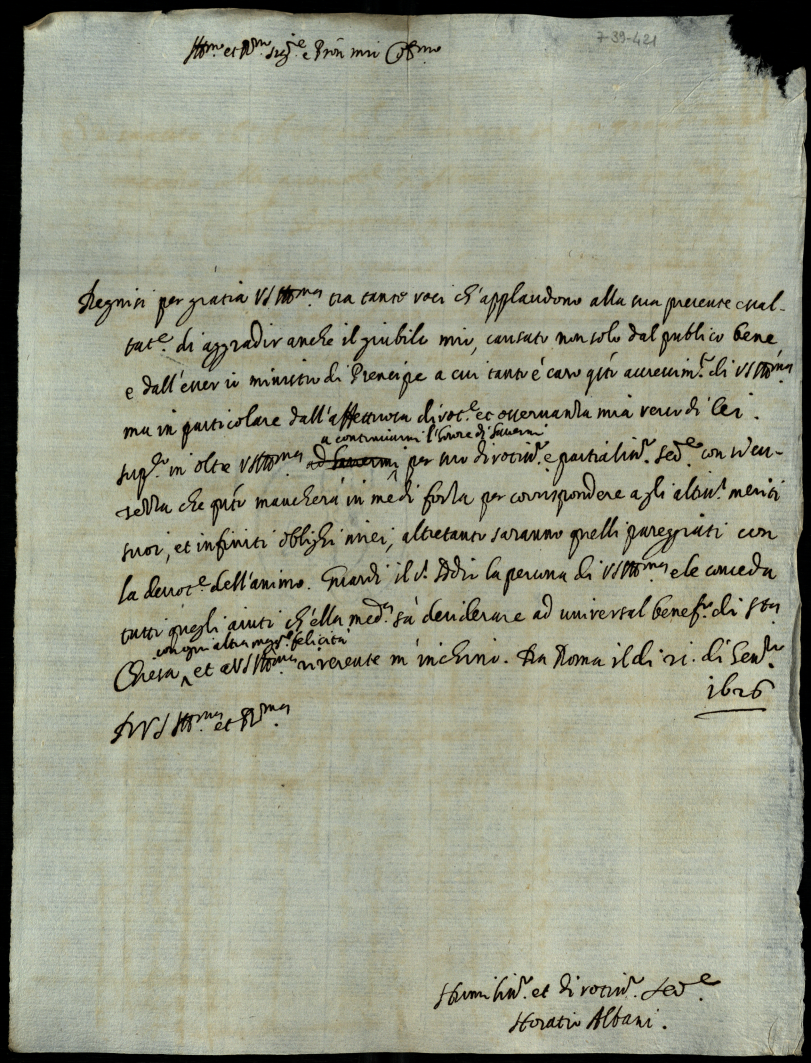 7-39-421
Ill.mo et R.mo Sig.re e Pron mio Col.mo
Degnisi per gratia VS Ill.ma tra tante voci ch'applaudono alla sua presente esal-
tat.e di aggradir anche il giubilo mio, causato non solo dal publico bene
e dall'esser io ministro di Prencipe a cui tanto è caro q.to accrescim.to di VS Ill.ma
ma in particolare dall'affettuosa divot.e et osservanza mia verso di Lei.
a continuarmi l'honore di havermi
sup.co in oltre VS Ill.ma ad havermi per suo divotiss.o e partialiss.o ser.e con sicu-
rezza che q.to mancherà in me di forza per corrispondere agli altiss.i meriti
suoi, et infiniti oblighi miei, altretanto saranno quelli pareggiati con
la devot.e dell'animo. Guardi il S. Iddio la persona di VS Ill.ma e le conceda
tutti quegli aiuti ch'ella med.a sà desiderare ad universal benef.o di S.ta
con ogni altra magg.re felicità
Chiesa, et a VS Ill.ma riverente m'inchino. Da Roma il di 21. di Gen.ro
1626
Di VS Ill.ma et R.ma
Humiliss.o et divotiss.o Ser.e
Horatio Albani.